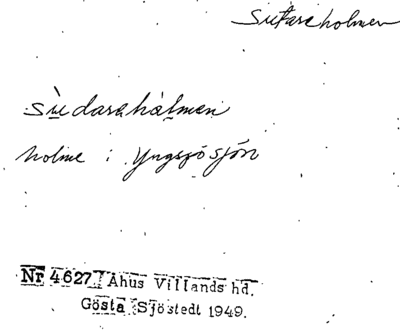 Sutareholmen
sùdarehàlmen
holme i Yngsjösjön
Nr 4627. Åhus Villands hd.
Gösta Sjöstedt 1949.